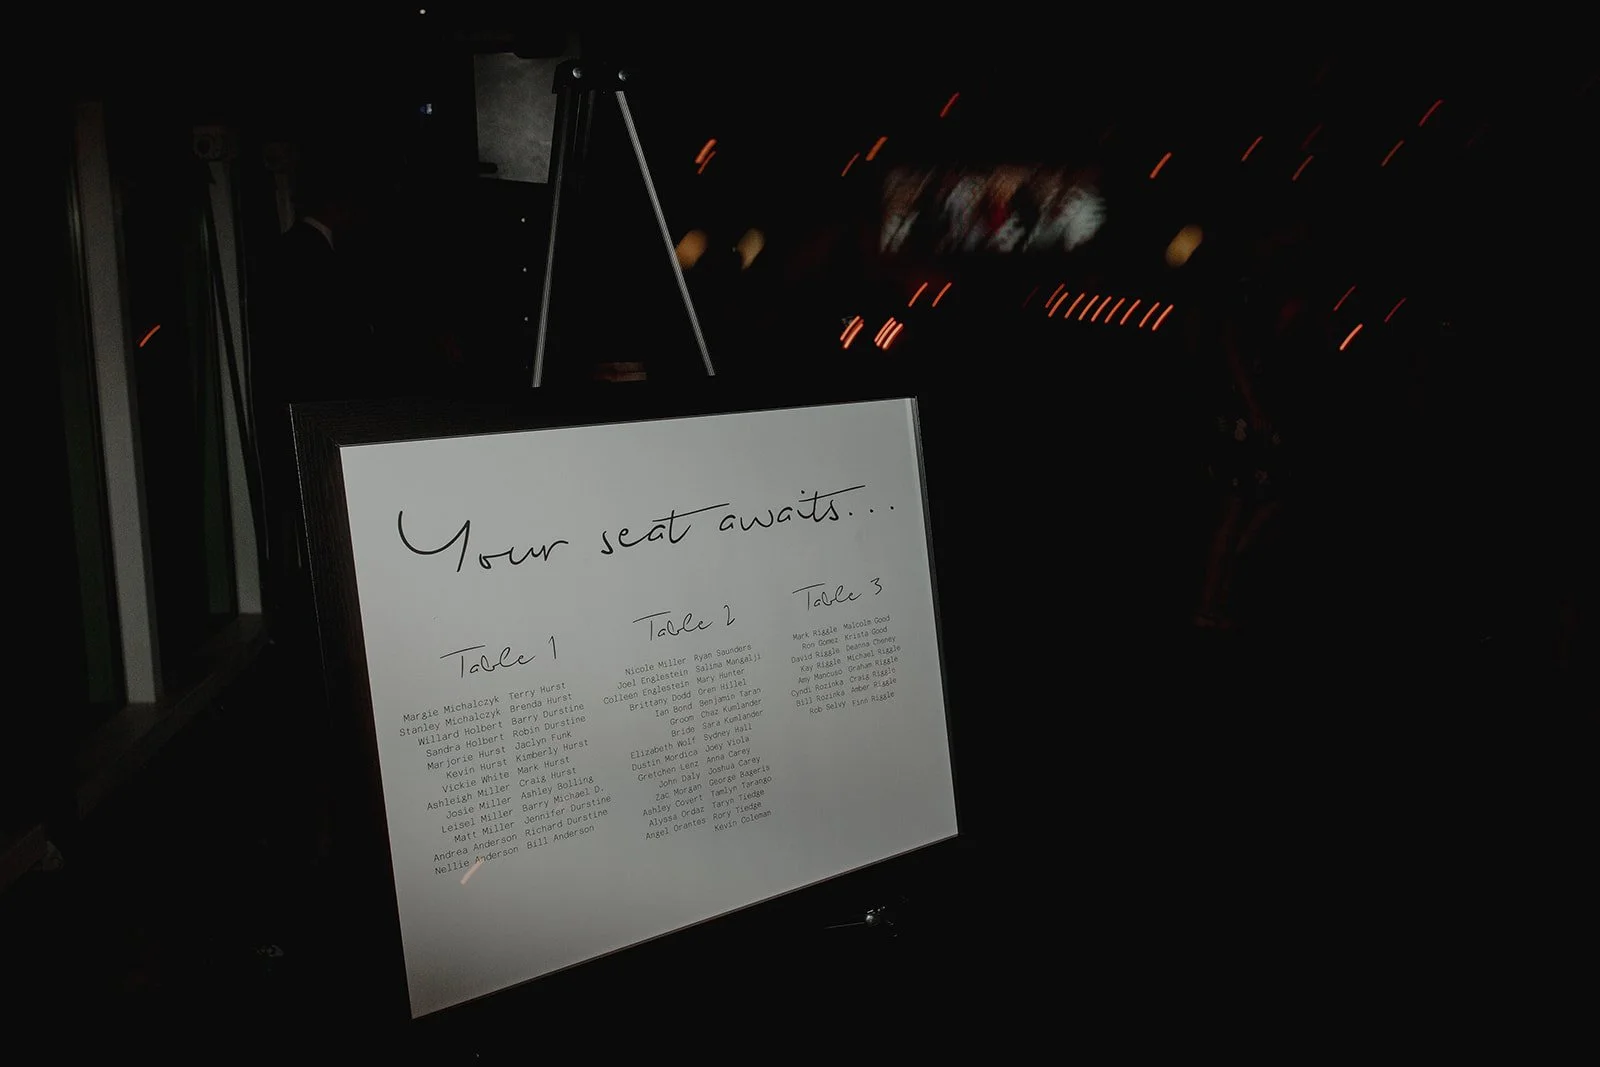 Your seat awaits...
Table 1
Margie Michalczyk Terry Hurst
Stanley Michalczyk Brenda Hurst
Willard Holbert Barry Durstine
Sandra Holbert Robin Durstine
Marjorie Hurst Jaclyn Funk
Kevin Hurst Kimberly Hurst
Vickie White Mark Hurst
Ashleigh Miller Craig Hurst
Josie Miller Ashley Bolling
Leisel Miller Barry Michael D.
Matt Miller Jennifer Durstine
Andrea Anderson Richard Durstine
Nellie Anderson Bill Anderson
Table 2
Nicole Miller Ryan Saunders
Joel Englestein Salima Mangalji
Colleen Englestein Mary Hunter
Brittany Dodd Oren Hillel
Ian Bond Benjamin Taran
Groom Chaz Kumlander
Bride Sara Kumlander
Elizabeth Wolf Sydney Hall
Dustin Mordica Joey Viola
Gretchen Lenz Anna Carey
John Daly Joshua Carey
Zac Morgan George Bageris
Ashley Covert Tamlyn Tarango
Alyssa Ordaz Taryn Tiedge
Angel Orantes Rory Tiedge
Kevin Coleman
Table 3
Mark Riggle Malcolm Good
Ron Gomez Krista Good
David Riggle Deanna Cheney
Kay Riggle Michael Riggle
Amy Mancuso Graham Riggle
Cyndi Rozinka Craig Riggle
Bill Rozinka Amber Riggle
Rob Selvy Finn Riggle